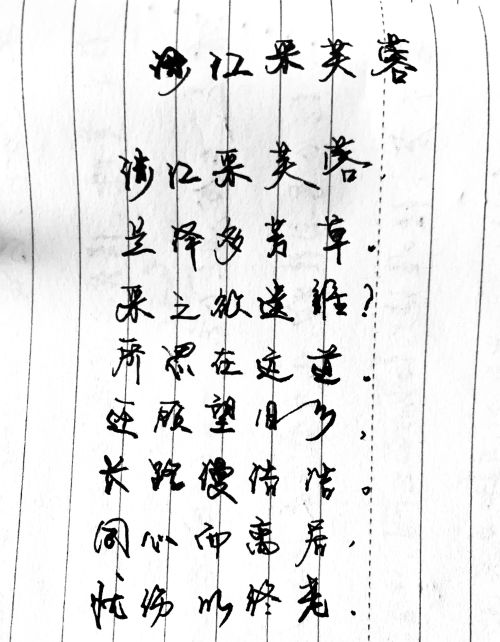 涉江采芙蓉
涉江采芙蓉.
兰泽多芳草.
采之欲遗谁?
所思在远道.
还顾望旧乡,
长路漫浩浩。
同心而离居,
忧伤以终老.